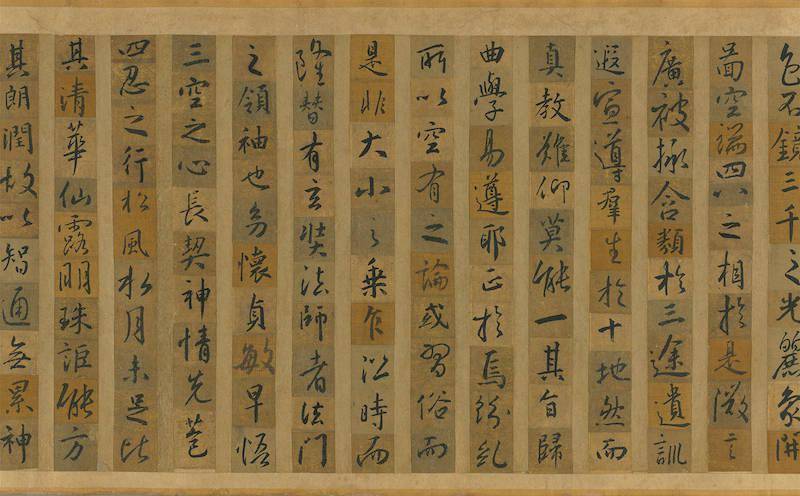 色不鏡三千之光麗象開
圖空端四八之相於是微言
廣被拯含類於三途遺訓
遐宣導群生於十地然而
真教難仰莫能一其旨歸
曲學易遵耶正於焉紛糺
所以空有之論或習俗而
是非大小之乘乍沿時而
隆替有玄奘法師者法門
之領袖也幼懷貞敏早悟
三空之心長契神情先苞
四忍之行松風水月未足比
其清華仙露明珠詎能方
其朗潤故以智通無累神